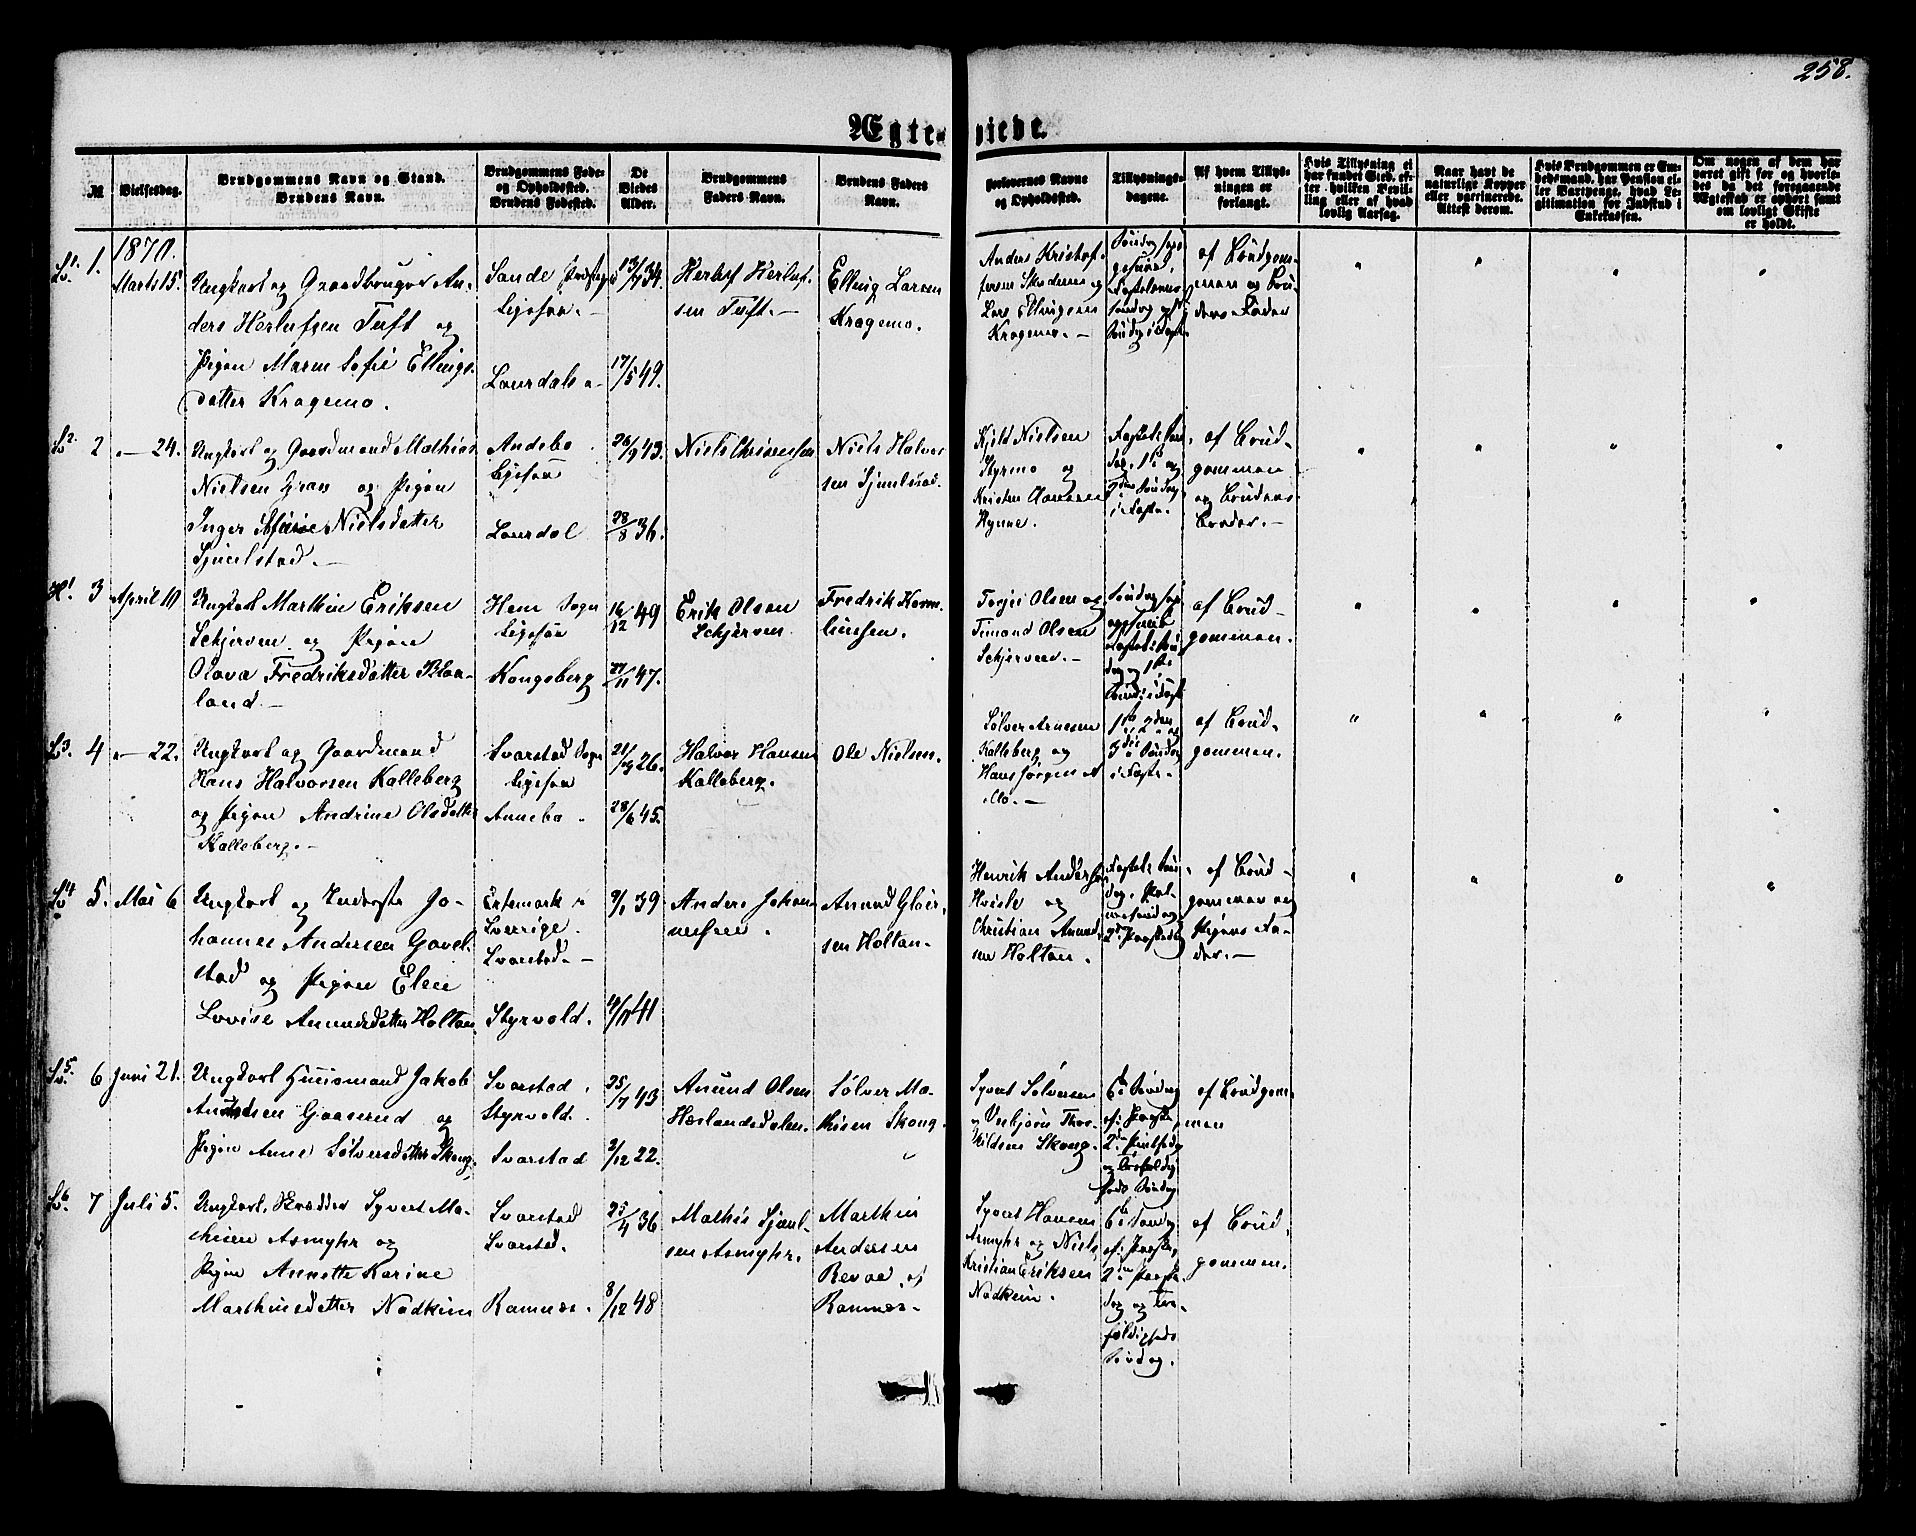 258.
Ægte- viede.
№
Vielsesdag.
Brudgommens Navn og Stand.
Brudens Navn.
Brudgommens Føde-
og Opholdssted.
Brudens Fødested.
De
Viedes
Alder.
Brudgommens
Faders Navn.
Brudens Faders
Navn.
Forlovernes Navne
og Opholdssted.
Tillysnings-
dagene.
Af hvem Tillys-
ningen er
forlangt.
Hvis Tillysning ei
har fundet Sted, ef-
ter hvilken Bevil-
ling eller af hvad
lovlig Aarsag.
Naar havt de
naturlige Kopper
eller vaccinerede.
Attest derom.
Hvis Brudgommen er Em-
bedsmand, har Pension el-
ler Vartpenge, hvad Le-
gitimation for Indskud i
Enkekassen.
Om nogen af dem har
været gift før og hvorle-
des da det foregaaende
Ægteskab er ophørt samt
om lovligt Skifte
er holdt.
1870.
Sv. 1. 1. Marts 15.
Ungkarl og Gaardbruger An-
ders Herlufsen Tuft og
Pigen Maren Sofie Ellings-
datter Kragemo.
Sande
Ligesaa. -
Laurdal
13/7 34.
17/5 49.
Herluf Herluf-
sen Tuft. -
Elling Larsen
Kragemo.
Anders Kristof-
fersen
Lars Ellingsen
Kragemo. -
af Brudgom-
men og Bru-
dens Fader
Sv. 2. 2 " - 24.
Ungkarl og Gaardmand Mathias
Nielsen Gran og Pigen
Inger Nielsdatter
Sjuelstad. -
Andebo
Ligesaa
Laurdal
26/9 43.
28/8 36.
Niels Chrisensen
Niels Halvor
sen Sjuelstad.
Kjeld Nielsen
Styrmo og
Kristen Hansen
af Brud-
gommen
og Brudens
Broder. -
H. 1 3 April 10
Ungkarl Marthin Eriksen
Schjerven og Pigen
Olava Fredriksdatter Blaa-
land. -
Hem Sogn
Ligesaa
Kongsberg
16/12 49
27/11 47.
Erik Olsen
Schjerven
Fredrik Herm
linsen.
Torjei Olsen og
Timand Olsen
Schjerven. -
af Brud-
gommen.
Sv. 3. 4 " - 22.
Ungkarl og Gaardmand
Hans Halvorsen Kalleberg
og Pigen Andrine Olsdatter
Kalleberg. -
Svarstad Sogn
Ligesaa
Annebo
26.
28/6 45.
Halvor Hansen
Kalleberg.
Ole Nielsen.
Sølver Arnesen
Kalleberg og
Hans Jørgen
1ste, 2den og
3die Søndag
i Faste. -
af Brud-
gommen.
Sv. 4 5. Mai 6
Ungkarl og Inderste Jo-
hannes Andersen Gavel-
stad og Pigen Elen
Lovise Anundsdatter Holtan.
Ertemark i
Sverige.
Svarstad. -
Styrvold.
9/1 39
4/11 41
Anders Johan
nesen.
Anund Gloer-
sen Holtan-
Henrik Andersen
Hvisle og
Christian Anund
sen Holtan.
af Brud-
gommen og
Pigens Fa-
der. -
Sv. 5. 6 Juni 21.
Ungkarl Husmand Jakob
Anundsen Gaaserud og
Pigen Anne Sølversdatter Skoug.
Svarstad
Styrvold.
Svarstad
25/7 43
2/12 22.
Anund Olsen
Hærlandsdalen.
Sølver Ma-
thisen Skoug.
Syvert Sølversen
og Vebjørn Thor-
kildsen Skoug.
af Brudgom-
men
Sv. 6. 7 Juli 5.
Ungkarl, Skrædder Syvert Ma-
thisen Asmyhr og
Pigen Annette Karine
Marthinsdatter Nadkim
Svarstad
Svarstad.
Ramnæs.
25/4 36
8/12 48
Mathis Sjuel-
sen Asmyhr.
Marthin
Andersen
Revaa, af
Ramnæs-
Syvert Hansen
Asmyhr og Niels
Kristian Eriksen
Nadkim.
af Brud-
gommen.